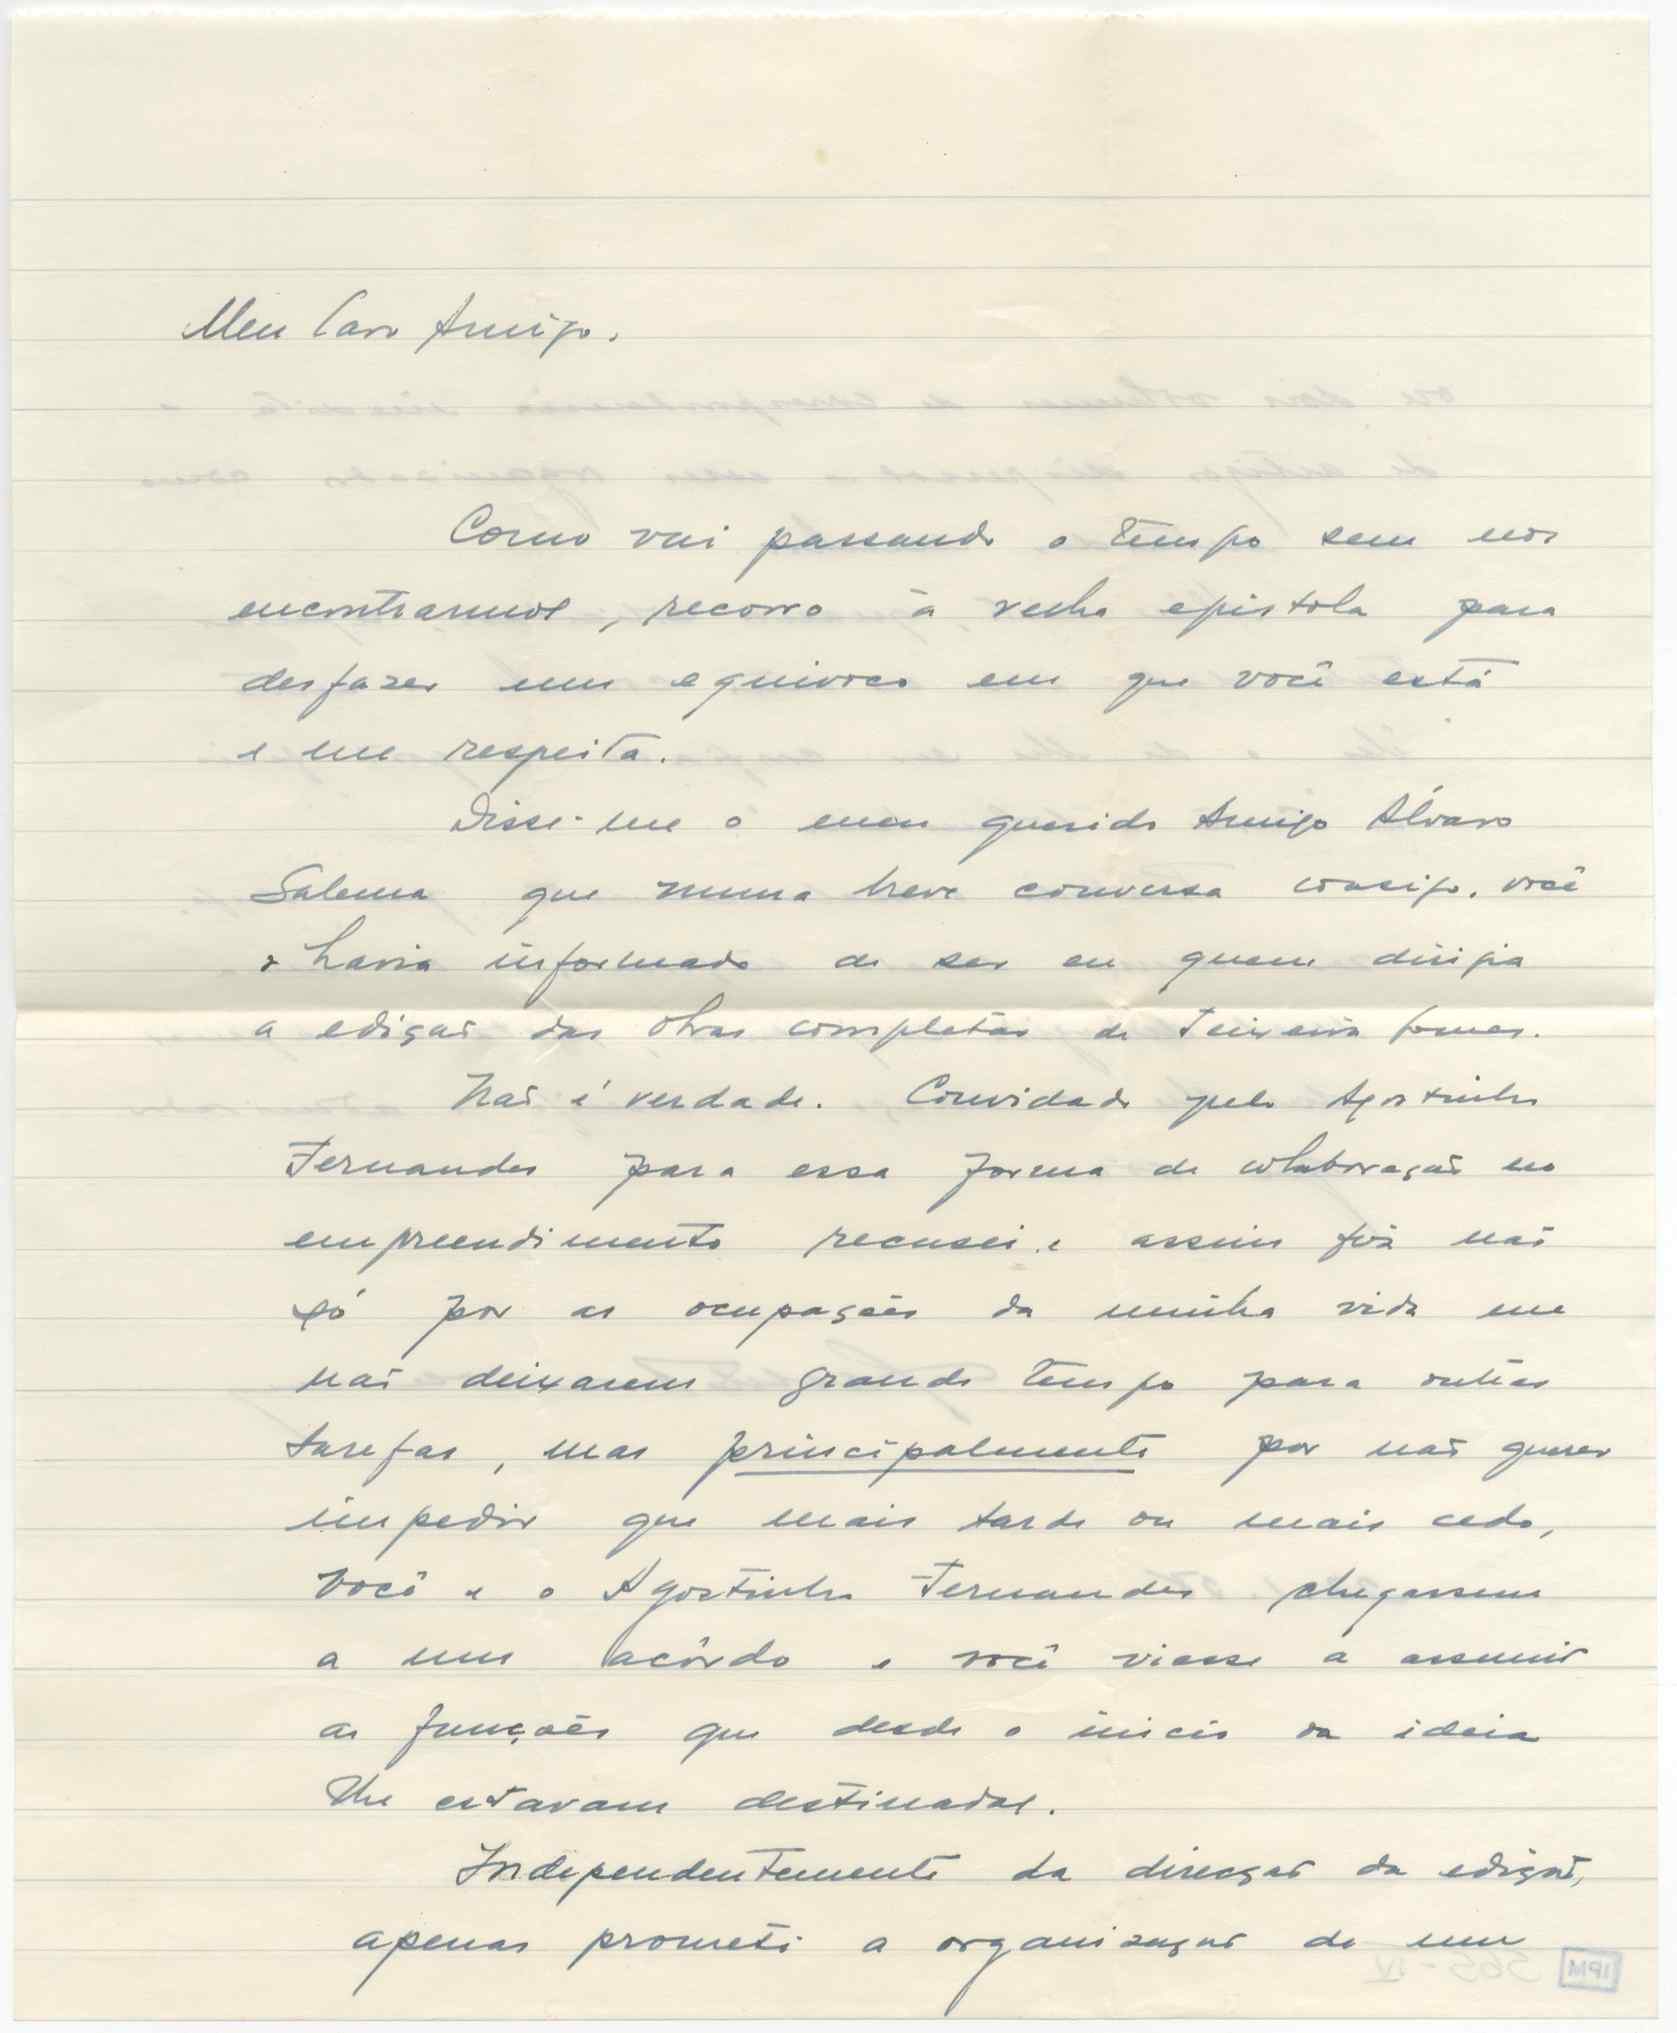 Meu Caro Amigo.
Como vai passando o tempo sem nos
encontrarmos, recorro à velha epistola para
desfazer um equivoco em que você está
e me respeita.
Disse-me o meu querido Amigo Álvaro
Salema que numa breve conversa consigo, você
o havia informado de ser eu quem dirigia
a edição das obras completas de Teixeira Gomes.
Não é verdade. Convidado pelo Agostinho
Fernandes para essa forma de colaboração no
empreendimento recusei e assim fiz não
só por as ocupações da minha vida me
não deixarem grande tempo para outras
tarefas, mas principalmente por não querer
impedir que mais tarde ou mais cedo,
Você e o Agostinho Fernandes chegassem
a um acôrdo e você viesse a assumir
as funções que desde o inicio da ideia
lhe estavam destinadas.
Independentemente da direcção da edição,
apenas prometi a organização de um
IPM 565-IV